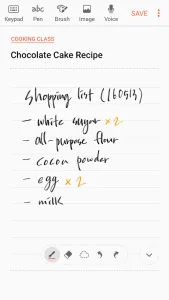 Keypad Pen Brush Image Voice SAVE
COOKING CLASS
Chocolate Cake Recipe
Shopping list (160513)
- white sugar × 2
- all-purpose flour
- cocoa powder
- egg × 2
- milk